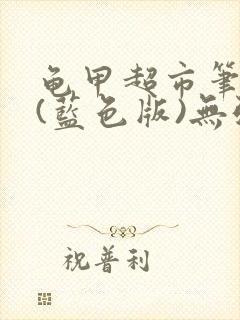 龟甲超市筆
(藍色版)無
祝普利